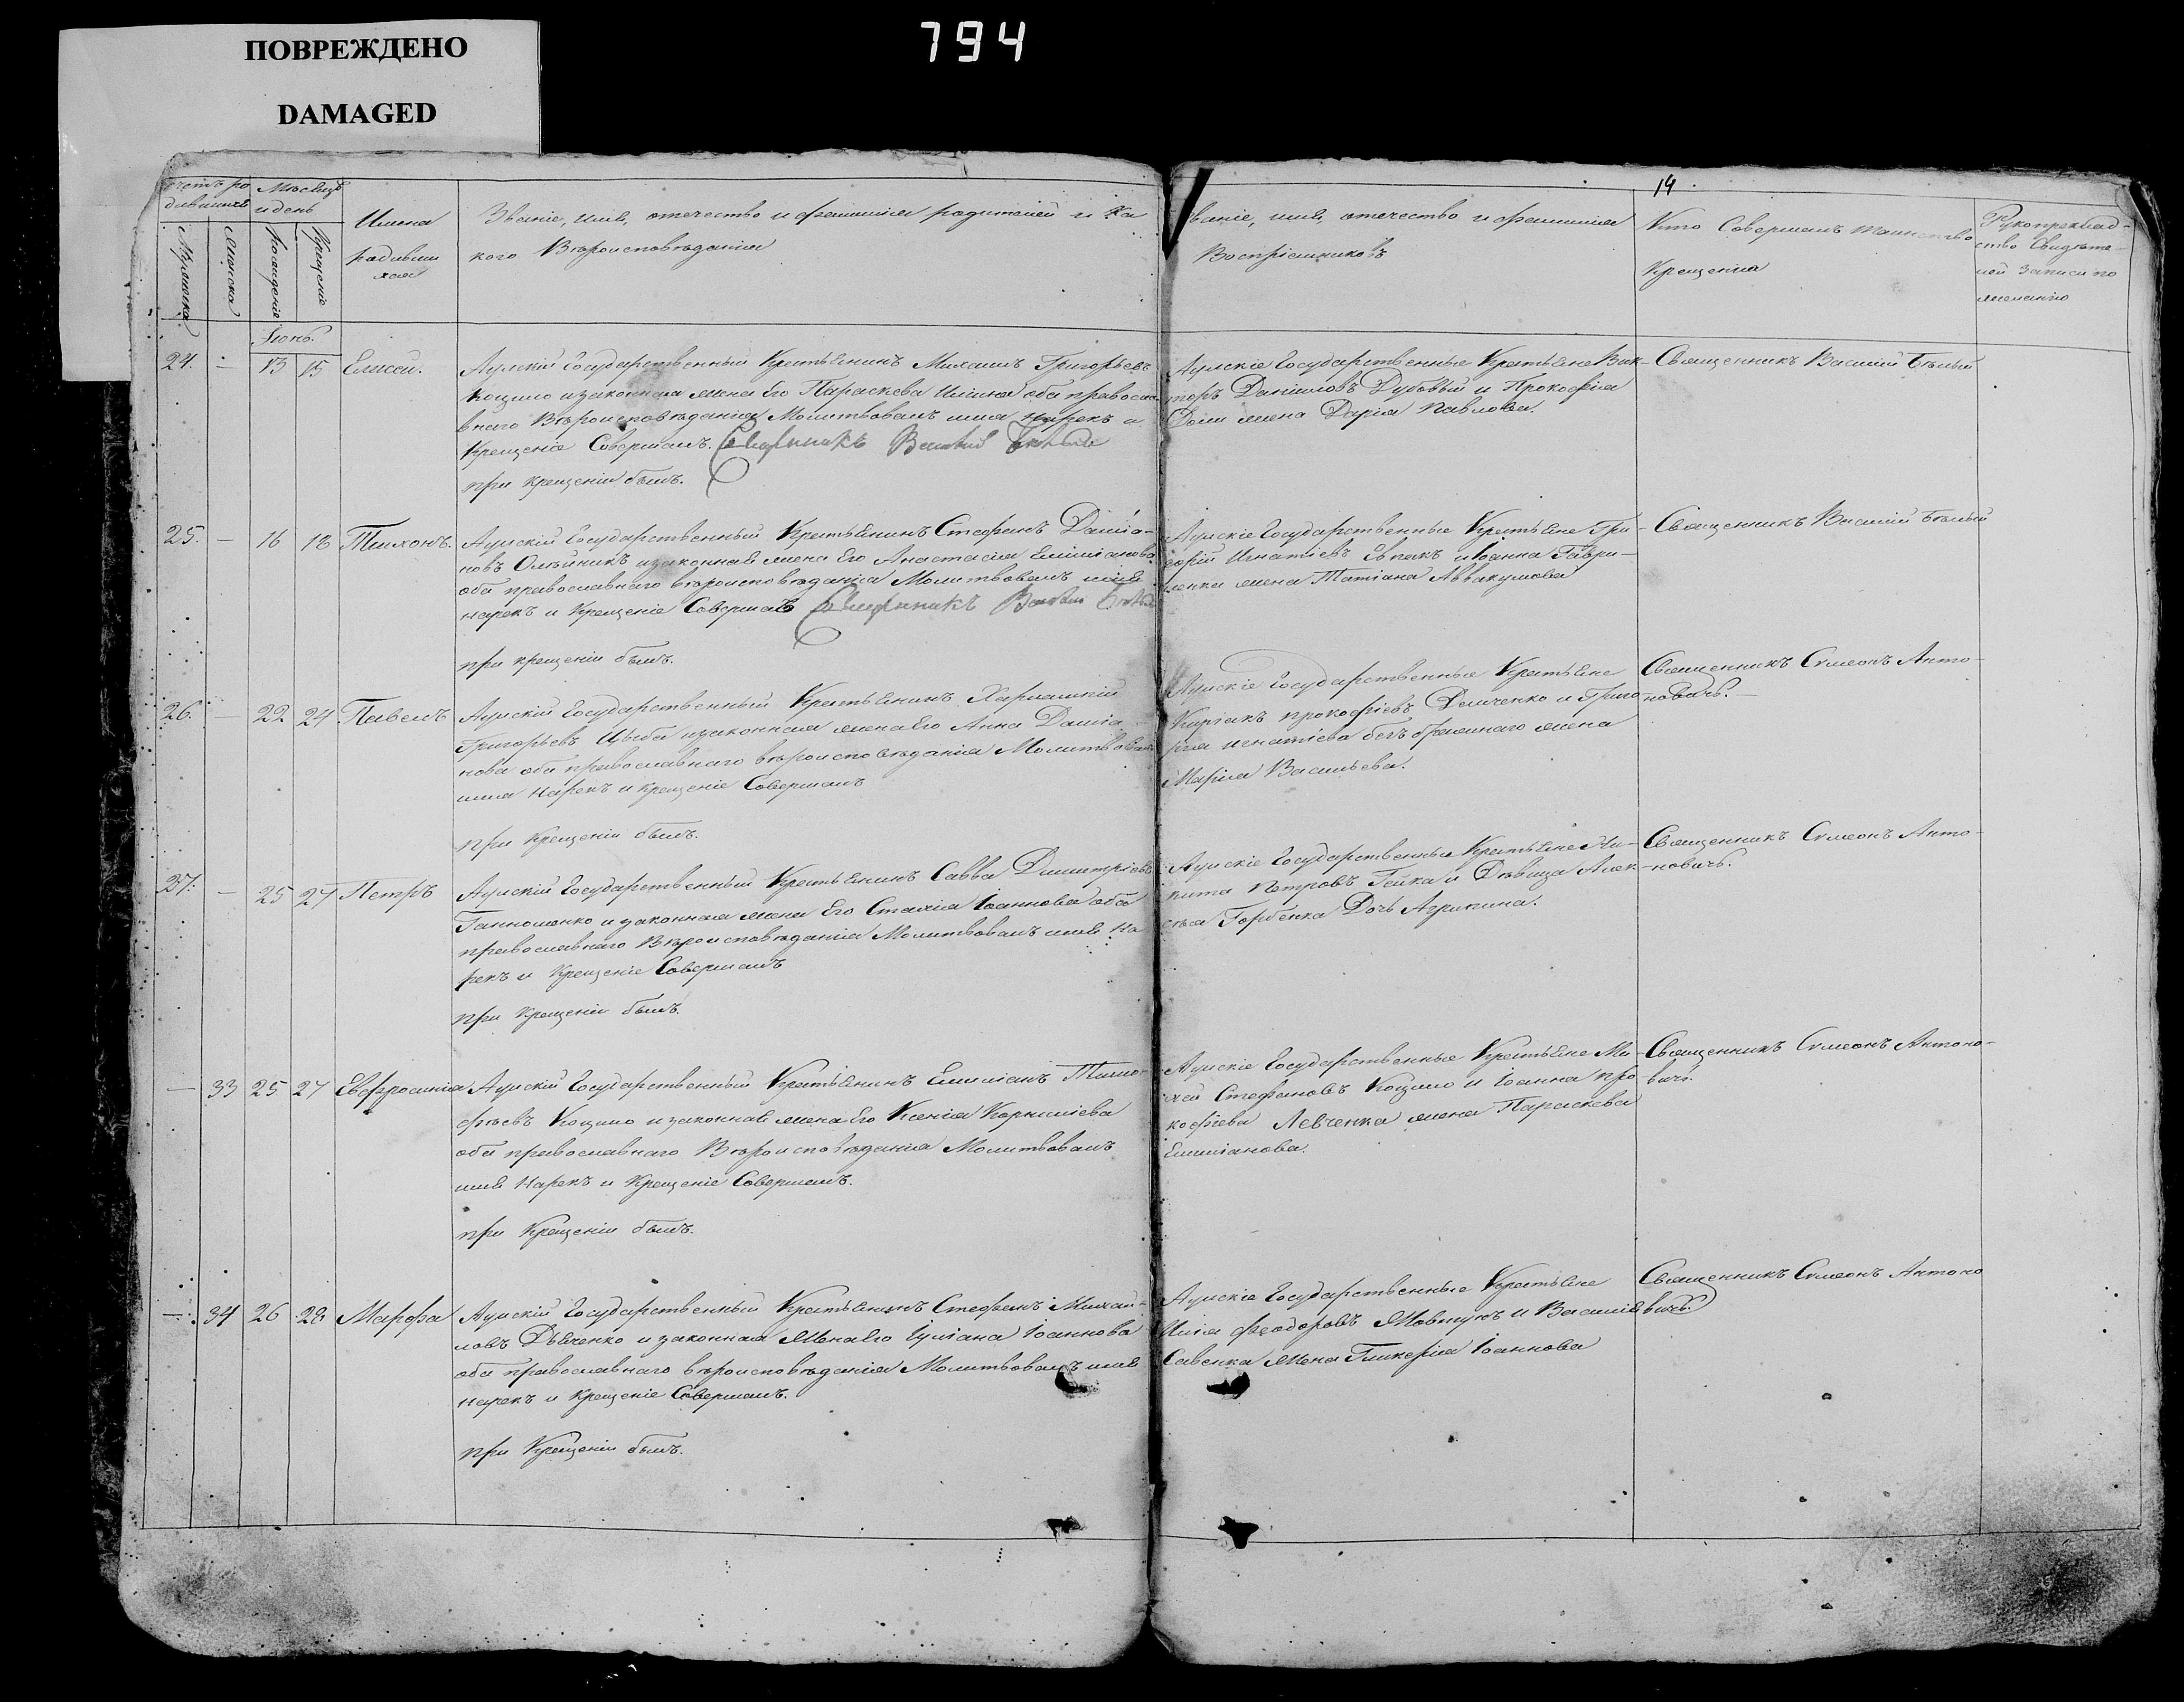 ПОВРЕЖДЕНО
DAMAGED
794
14
Счетъ ро
дившихся
Мѣсяцъ
и день
Мужеска
Женска
Рожденіе
Крещеніе
Имена
родивши
хся
Званіе, имя, отечество и фамилія родителей и ка
кого Вѣроисповѣданія
Званіе, имя, отечество и фамилія
Воспріемниковъ
Кто Совершалъ таинство
Крещенія
Рукоприклад-
ство Свидѣте-
лей Записи по
желанію
Іюнь.
24. – 13 15 Елисей.
Аулскій Государственный Крестьянинъ Михаилъ Григорьевъ
Коцило и законная жена Его Параскева Ильина оба правосла
внаго Вѣроисповѣданія Молитвовалъ имя нарекъ и
Крещеніе Совершалъ. Священникъ Василій Бѣлый
при крещеніи былъ.
Аулскіе Государственные Крестьяне Вик-
торъ Даніиловъ Дубовый и Прокофія
жена Дарія Павлова.
Священникъ Василій Бѣлый
25. – 16 18 Тихонъ.
Аулскій Государственный Крестьянинъ Стефанъ Даміа-
новъ Олѣйникъ и законная жена Его Анастасія Емиліанова
оба православнаго вѣроисповѣданія Молитвовалъ имя
нарекъ и Крещеніе Совершалъ Священникъ Василій Бѣлый
при крещеніи былъ.
Аулскіе Государственные Крестьяне Гри-
горій Игнатіевъ и Іоанна Гаври-
ленка жена Татіана Аввакумова
Священникъ Василій Бѣлый
26. – 22 24 Павелъ
Аулскій Государственный Крестьянинъ Харлампій
Григорьевъ Цыба и законная жена Его Анна Даміа
нова оба православнаго вѣроисповѣданія Молитвовалъ
имя Нарекъ и крещеніе Совершалъ
при Крещеніи былъ.
Аулскіе Государственные Крестьяне
Киріакъ Прокофіевъ Демченко и Григо
рія Игнатіева жена
Марія Васильева.
Священникъ Сѵмеонъ Анто-
новичъ. –
27. – 25 27 Петръ
Аулскій Государственный Крестьянинъ Савва Димитріевъ
и законная жена Его Іоаннова оба
православнаго Вѣроисповѣданія Молитвовалъ имя На
рекъ и Крещеніе Совершалъ
при Крещеніи былъ.
Аулскіе Государственные Крестьяне Ни-
кита Петровъ Гейка и Дѣвица Алек-
сѣя Горбенка Дочь Агрипина.
Священникъ Сѵмеонъ Анто-
новичъ.
– 33 25 27 Евфросинія
Аулскій Государственный Крестьянинъ Емиліанъ Тимо-
фѣевъ Коцило и законная жена Его Ксенія Корниліева
оба православнаго Вѣроисповѣданія Молитвовалъ
имя Нарекъ и Крещеніе Совершалъ.
при Крещеніи былъ.
Аулскіе Государственные Крестьяне Ми-
хей Стефановъ Коцило и Іоанна Про
кофіева Левченка жена Параскева
Емиліанова.
Священникъ Сѵмеонъ Антоно-
вичъ.
– 34 26 28 Марфа
Аулскій Государственный Крестьянинъ Стефанъ Михай-
ловъ Дѣвченко и законная жена Его Іуліана Іоаннова
оба православнаго вѣроисповѣданія Молитвовалъ имя
нарекъ и Крещеніе Совершалъ.
при Крещеніи былъ.
Аулскіе Государственные Крестьяне
Илія Феодоровъ Жовтухъ и Василія
Савенка жена Гликерія Іоаннова
Священникъ Сѵмеонъ Антоно
вичъ.